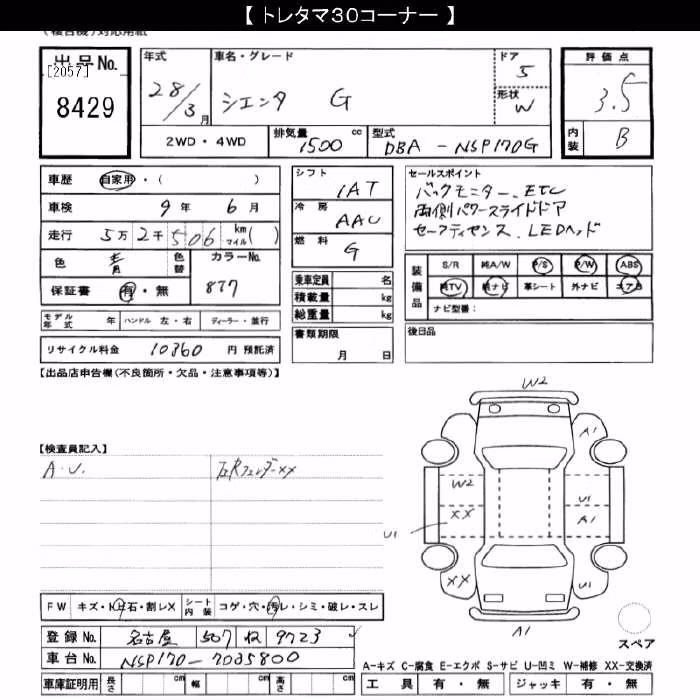 【 トレタマ30コーナー 】
(複合機)対応用紙
出品No.
[2057]
8429
年式
28/3月
車名・グレード
シエンタ G
ドア
5
形状
W
評価点
3.5
内装
B
2WD・4WD
排気量 1500 cc
型式 DBA - NSP170G
車歴 自家用・( )
車検 9年 6月
走行 5万2千506 km マイル( )
色 青 色替 カラーNo. 877
保証書 有・無
モデル年式 年 ハンドル 左・右 ディーラー・並行
リサイクル料金 10360 円 預託済
シフト
IAT
冷房
AAC
燃料
G
乗車定員 名
積載量 kg
総重量 kg
書類期限
月 日
セールスポイント
バックモニター、ETC
両側パワースライドドア
セーフティセンス、LEDヘッド
装備品
S/R 純A/W P/S P/W ABS
純TV 純ナビ 革シート 外ナビ エアB
ナビ型番:
後日品
【出品店申告欄(不良箇所・欠品・注意事項等)】
【検査員記入】
A・U.
左Rフェンダーxx
W2
A1
W2
U1
XX
A1
U1
XX
U1
A1
スペア
FW キズ・トビ石・割レX シート内装 コゲ・穴・汚レ・シミ・破レ・スレ
登録No. 名古屋 507 ね 9723
車台No. NSP170-7035800
車庫証明用 長さ cm 幅 cm 高さ cm
A-キズ C-腐食 E-エクボ S-サビ U-凹ミ W-補修 XX-交換済
工具 有・無 ジャッキ 有・無